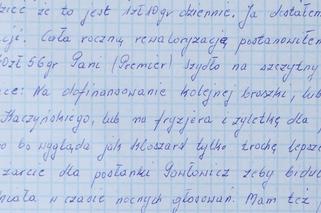 dzieć że to jest 1zł 10gr dziennie. Ja dostałem
cję. Całą roczną rewaloryzację postanowiłem
60zł 56gr Pani (Premier) Szydło na szczytny
ce: Na dofinansowanie kolejnej broszki, lub
Kaczyńskiego, lub na fryzjera i żyletkę dla
o bo wygląda jak kloszard tylko trochę lepsze
żarcie dla posłanki Pawłowicz żeby bidu
miała w czasie nocnych głosowań. Mam też